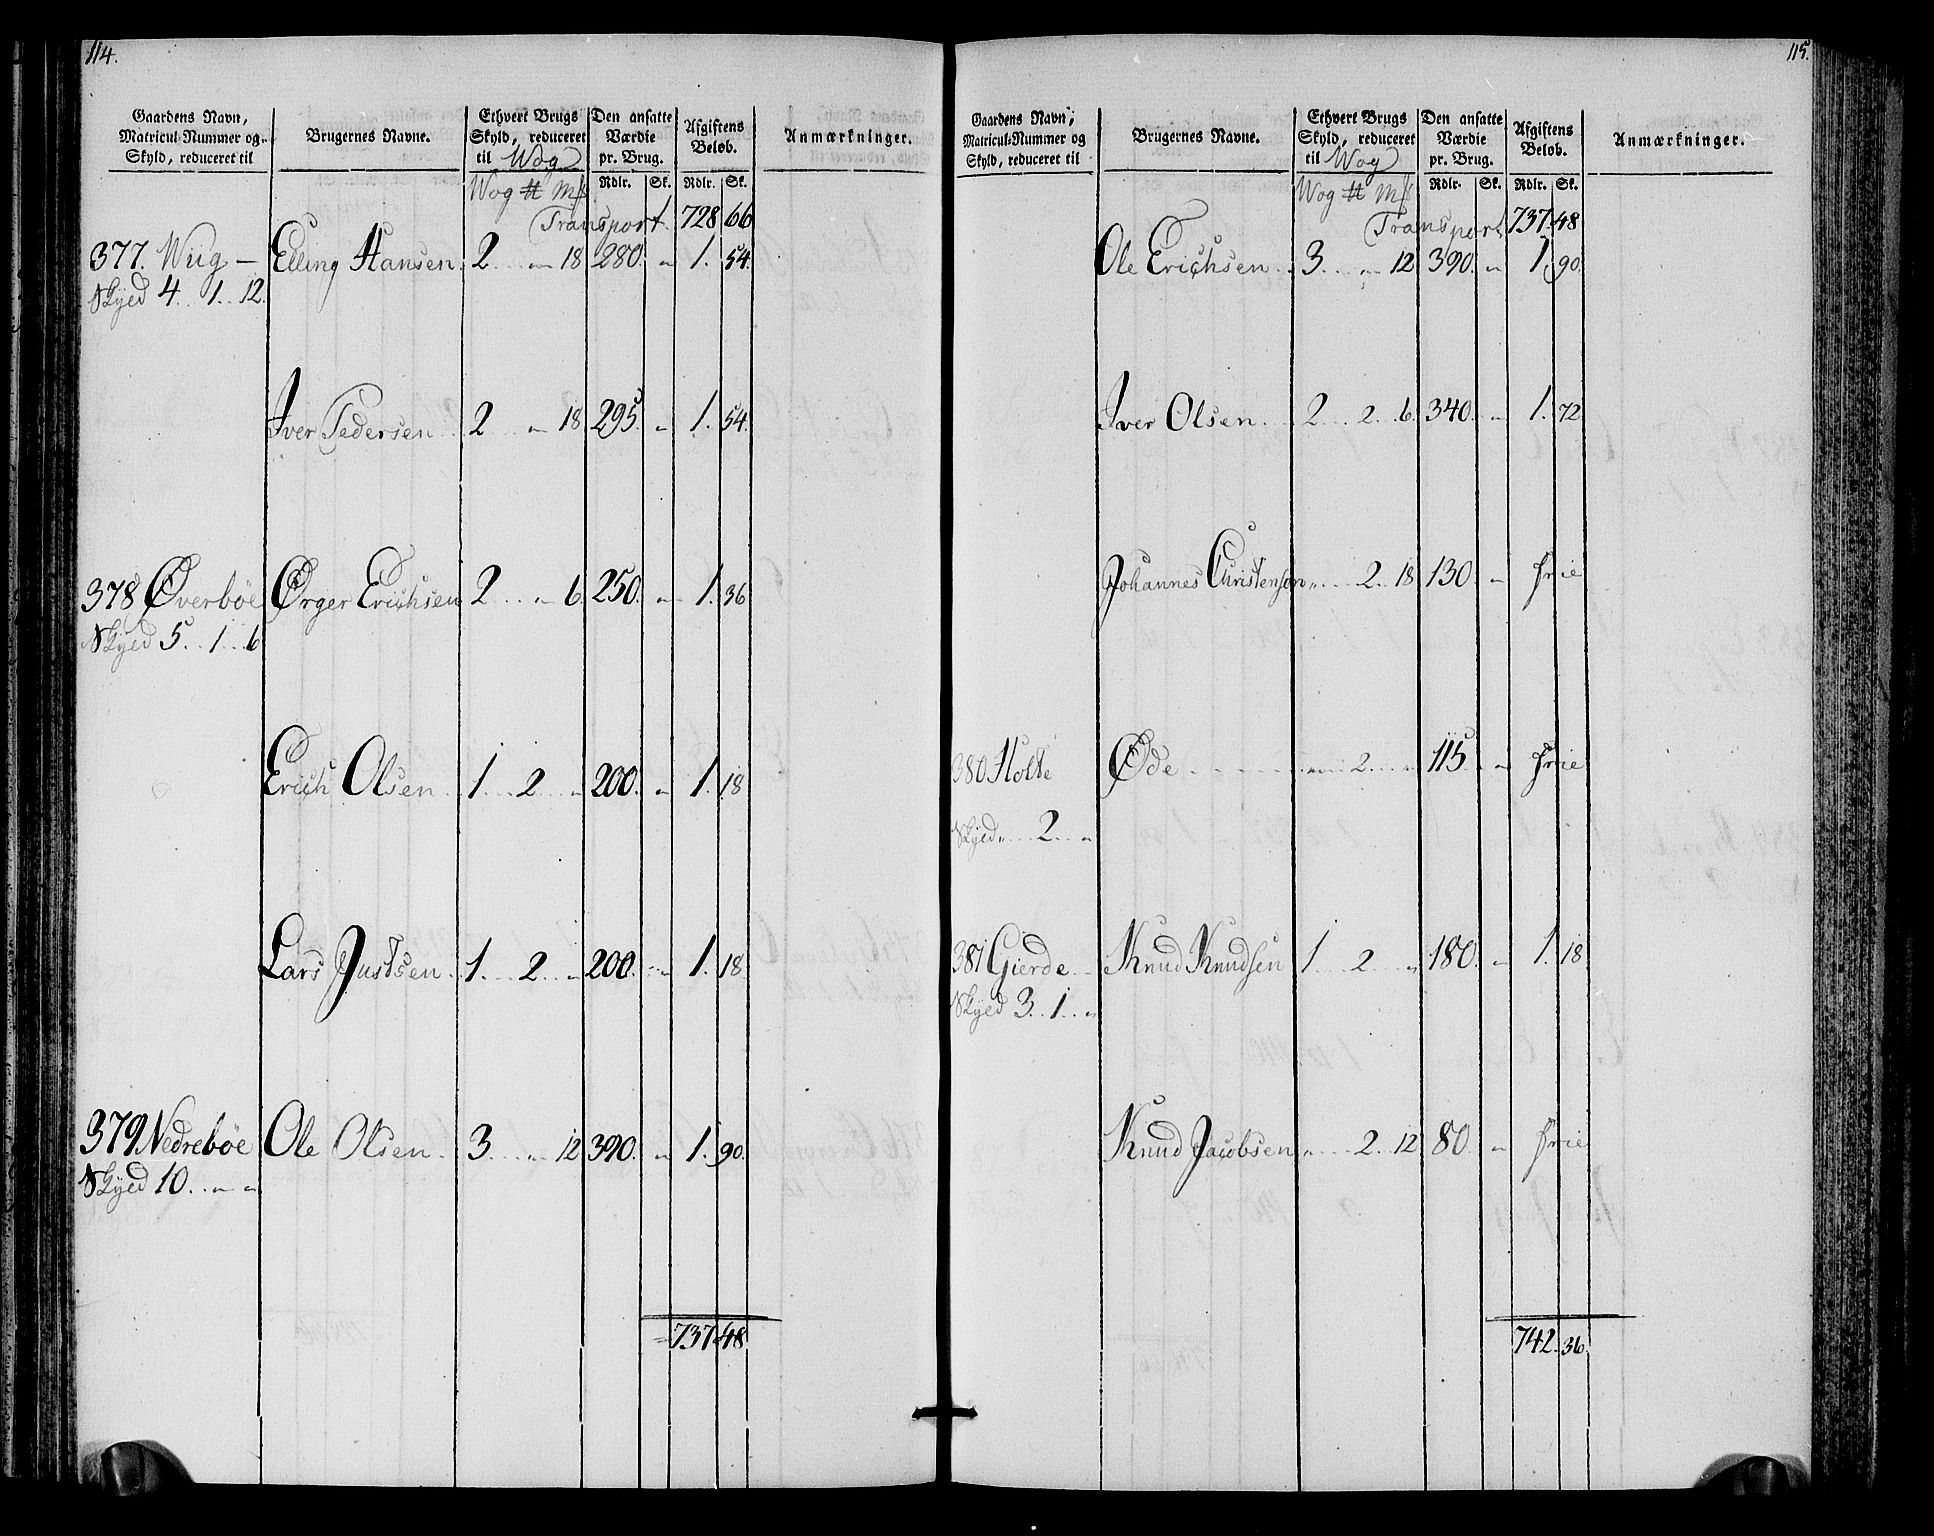 114.
Gaardens Navn, Matricul-Nummer og Skyld, reduceret til | Brugernes Navne. | Ethvert Brugs Skyld, reduceret til Wog | Den ansatte Værdie pr. Brug. | Afgiftens Beløb. | Anmærkninger.
Wog ℔ Mk | Rdlr. Sk. | Rdlr. Sk.
Transport. 728 66
377. Wiig — Elling Hansen. 2 . . „ 18 280. „ 1. 54.
Skyld 4. 1. 12.
Iver Pedersen 2 . . „ 18 295. „ 1. 54.
378 Øverbøe Ørger Erichsen 2 . . „ 6. 250. „ 1. 36
Skyld 5. . 1. . 6
Erich Olsen. 1. . . 2. . . „ 200. „ 1. 18
Lars Justsen. 1. . . 2. . „ 200. „ 1. 18
379 Nedrebøe Ole Olsen. 3. . . „ 12 390. „ 1. 90.
Skyld 10. . „ „
737 48
115.
Gaardens Navn, Matricul-Nummer og Skyld, reduceret til | Brugernes Navne. | Ethvert Brugs Skyld, reduceret til Wog | Den ansatte Værdie pr. Brug. | Afgiftens Beløb. | Anmærkninger.
Wog ℔ Mk | Rdlr. Sk. | Rdlr. Sk.
Transport 737. 48
Ole Erichsen 3. . . „ 12 390. „ 1. 90.
Iver Olsen. 2 . . 2. 6. 340. „ 1. 72
Johannes Christenson „ . . 2. . 18 130. „ frie
380 Holte Øde . . . . „ . . 2. . „ 115 „ frie
Skyld „ . . 2. . „
381 Gierde Knud Knudsen 1 . . 2 . . „ 180. „ 1. 18.
Skyld 3. . 1. . „
Knud Jacobsen „ . . 2. . 12 80. „ frie
742. 36.